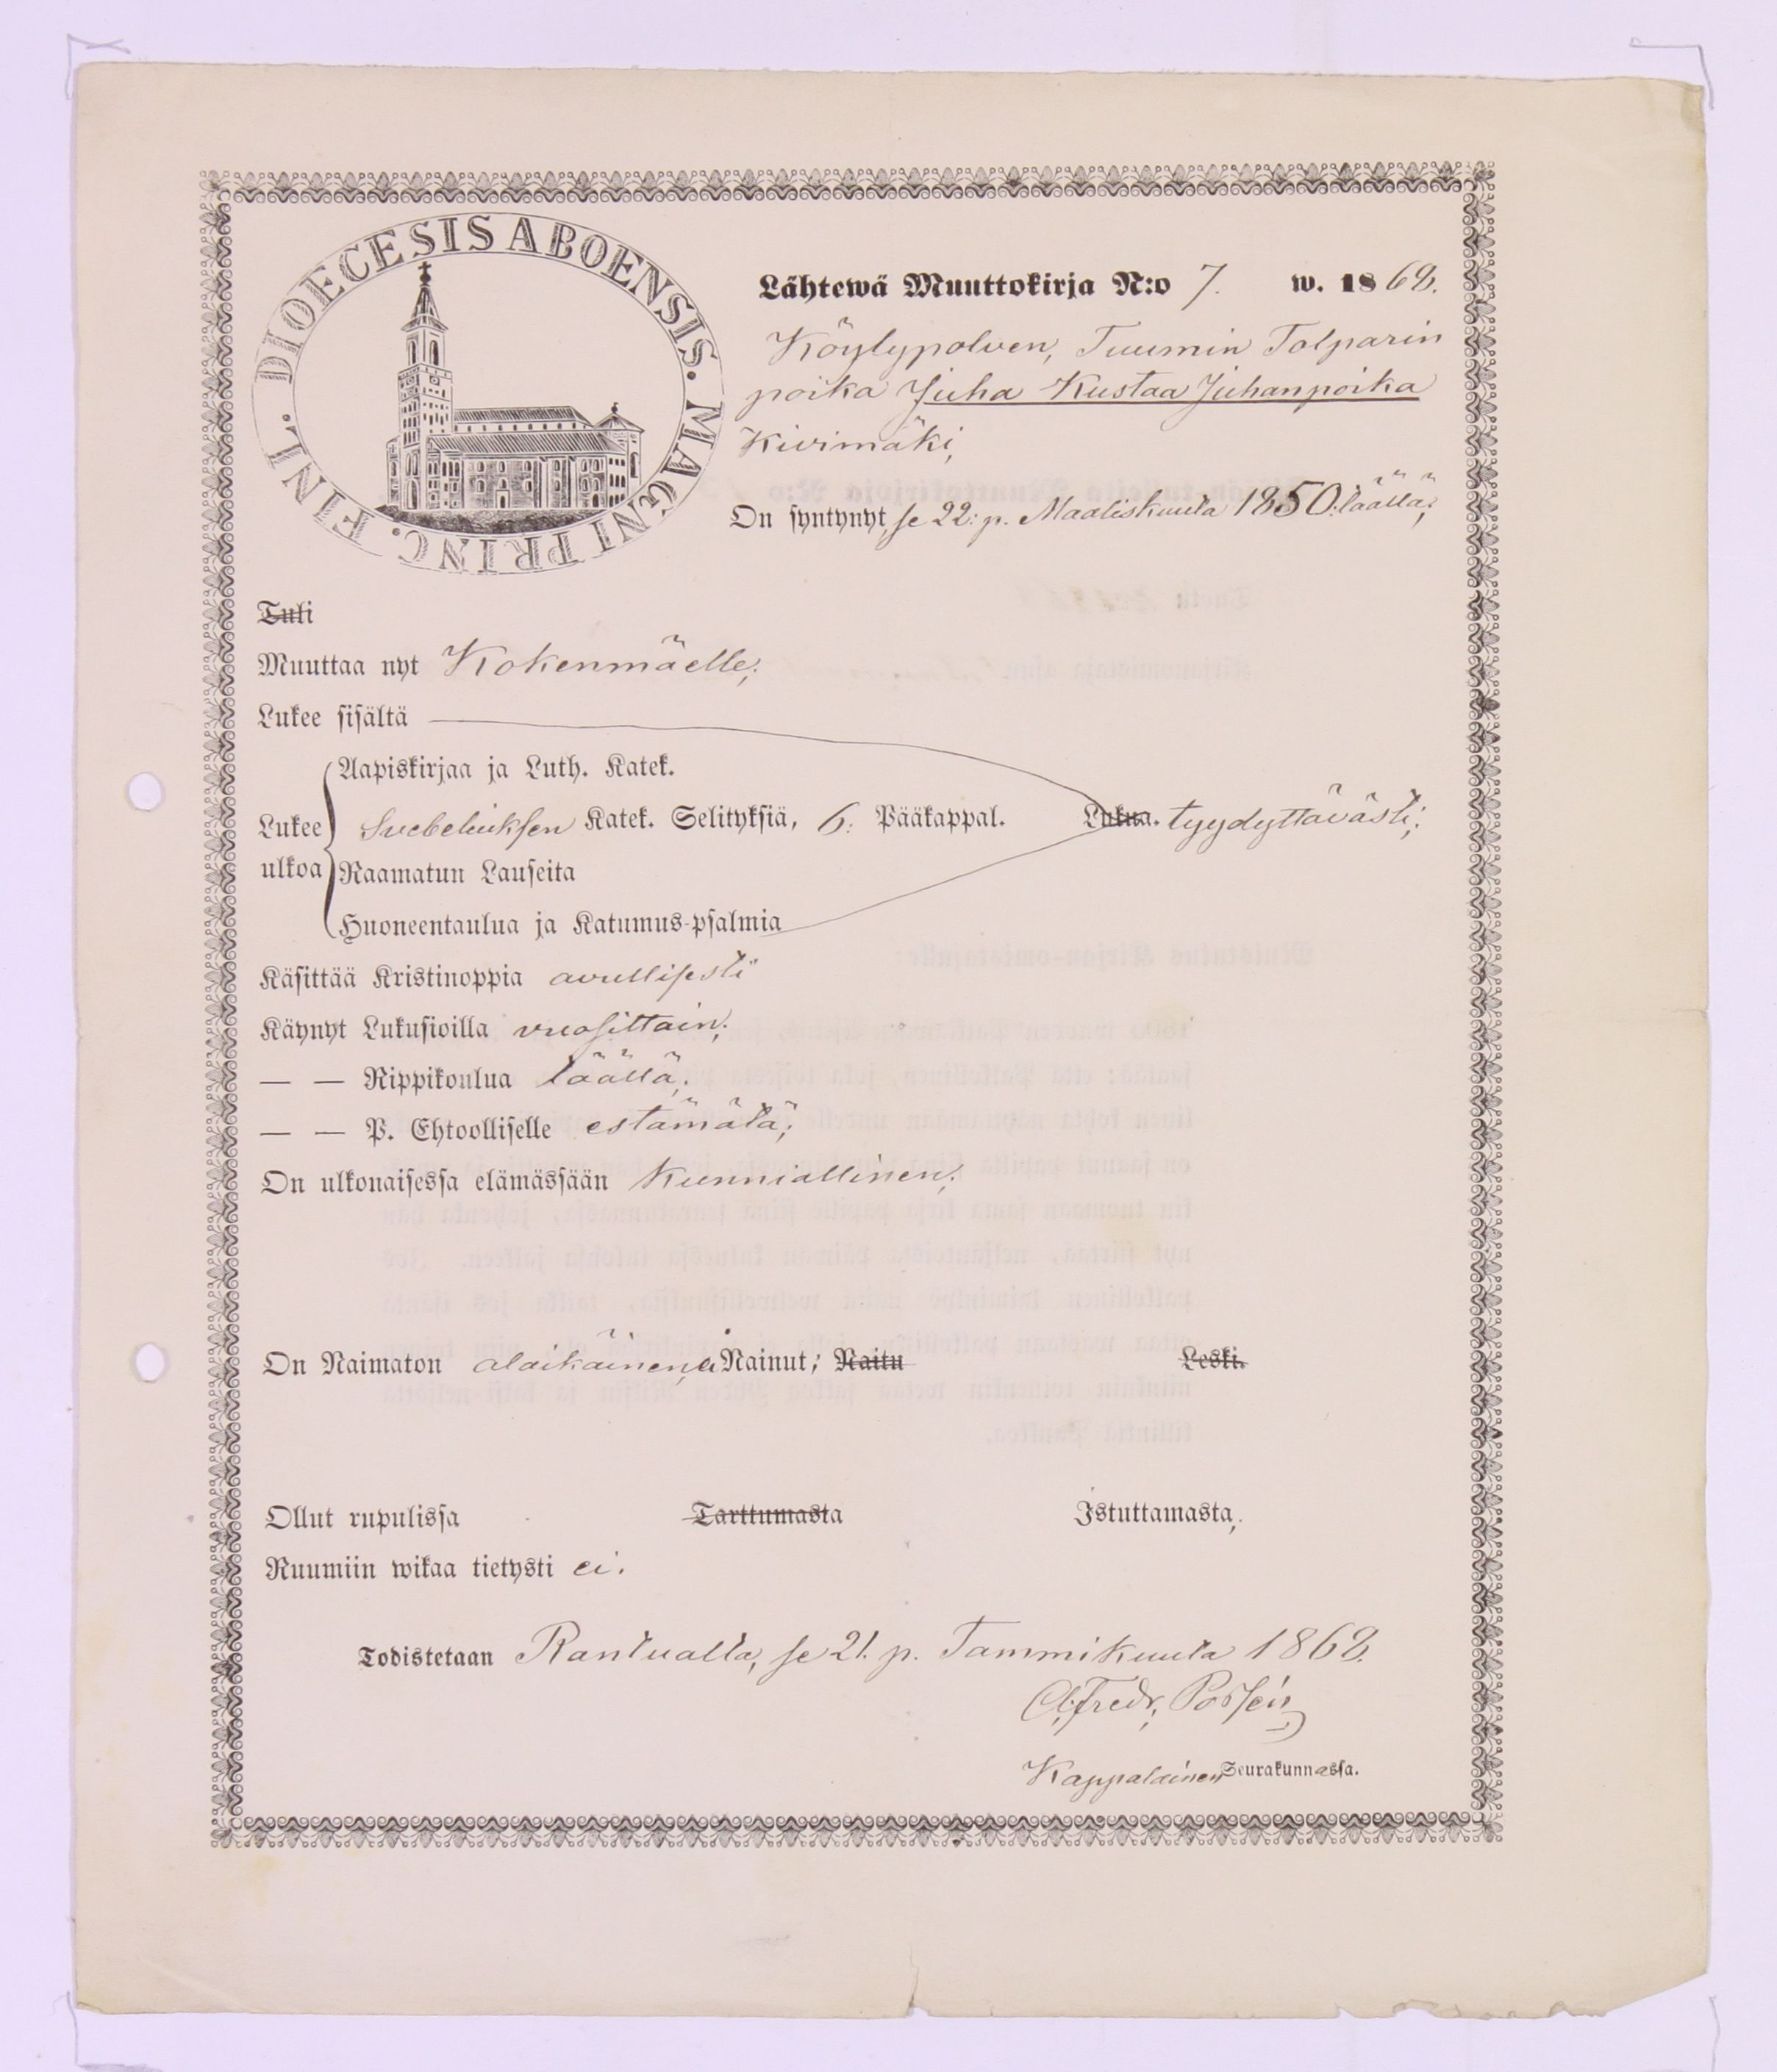 DIOECESIS ABOENSIS. MAGNI PRINC. FINL.
Lähtewä Muuttokirja N:o 7. w. 1868.
Köylypolven, Tuumin Tolparin
poika Juha Kustaa Juhanpoika
Kivimäki,
On syntynyt se 22: p. Maaliskuuta 1850: täällä;
Tuli
Muuttaa nyt Kokenmäelle;
Lukee sisältä
Aapiskirjaa ja Luth. Katek.
Lukee ulkoa Svebeliuksen Katek. Selityksiä, 6: Pääkappal. Lukua. tyydyttävästi;
Raamatun Lauseita
Huoneentaulua ja Katumus-psalmia
Käsittää Kristinoppia avullisesti
Käynyt Lukusioilla vuosittain;
— — Rippikoulua täällä;
— — P. Ehtoolliselle estämätä;
On ulkonaisessa elämässään Kunniallinen;
On Naimaton alaikäinen, ei Nainut; Naitu Leski.
Ollut rupulissa Tarttumasta Istuttamasta;
Ruumiin wikaa tietysti ei.
Todistetaan se 21. p. Tammikuuta 1868.
Fredr.
Kappalainen Seurakunnassa.